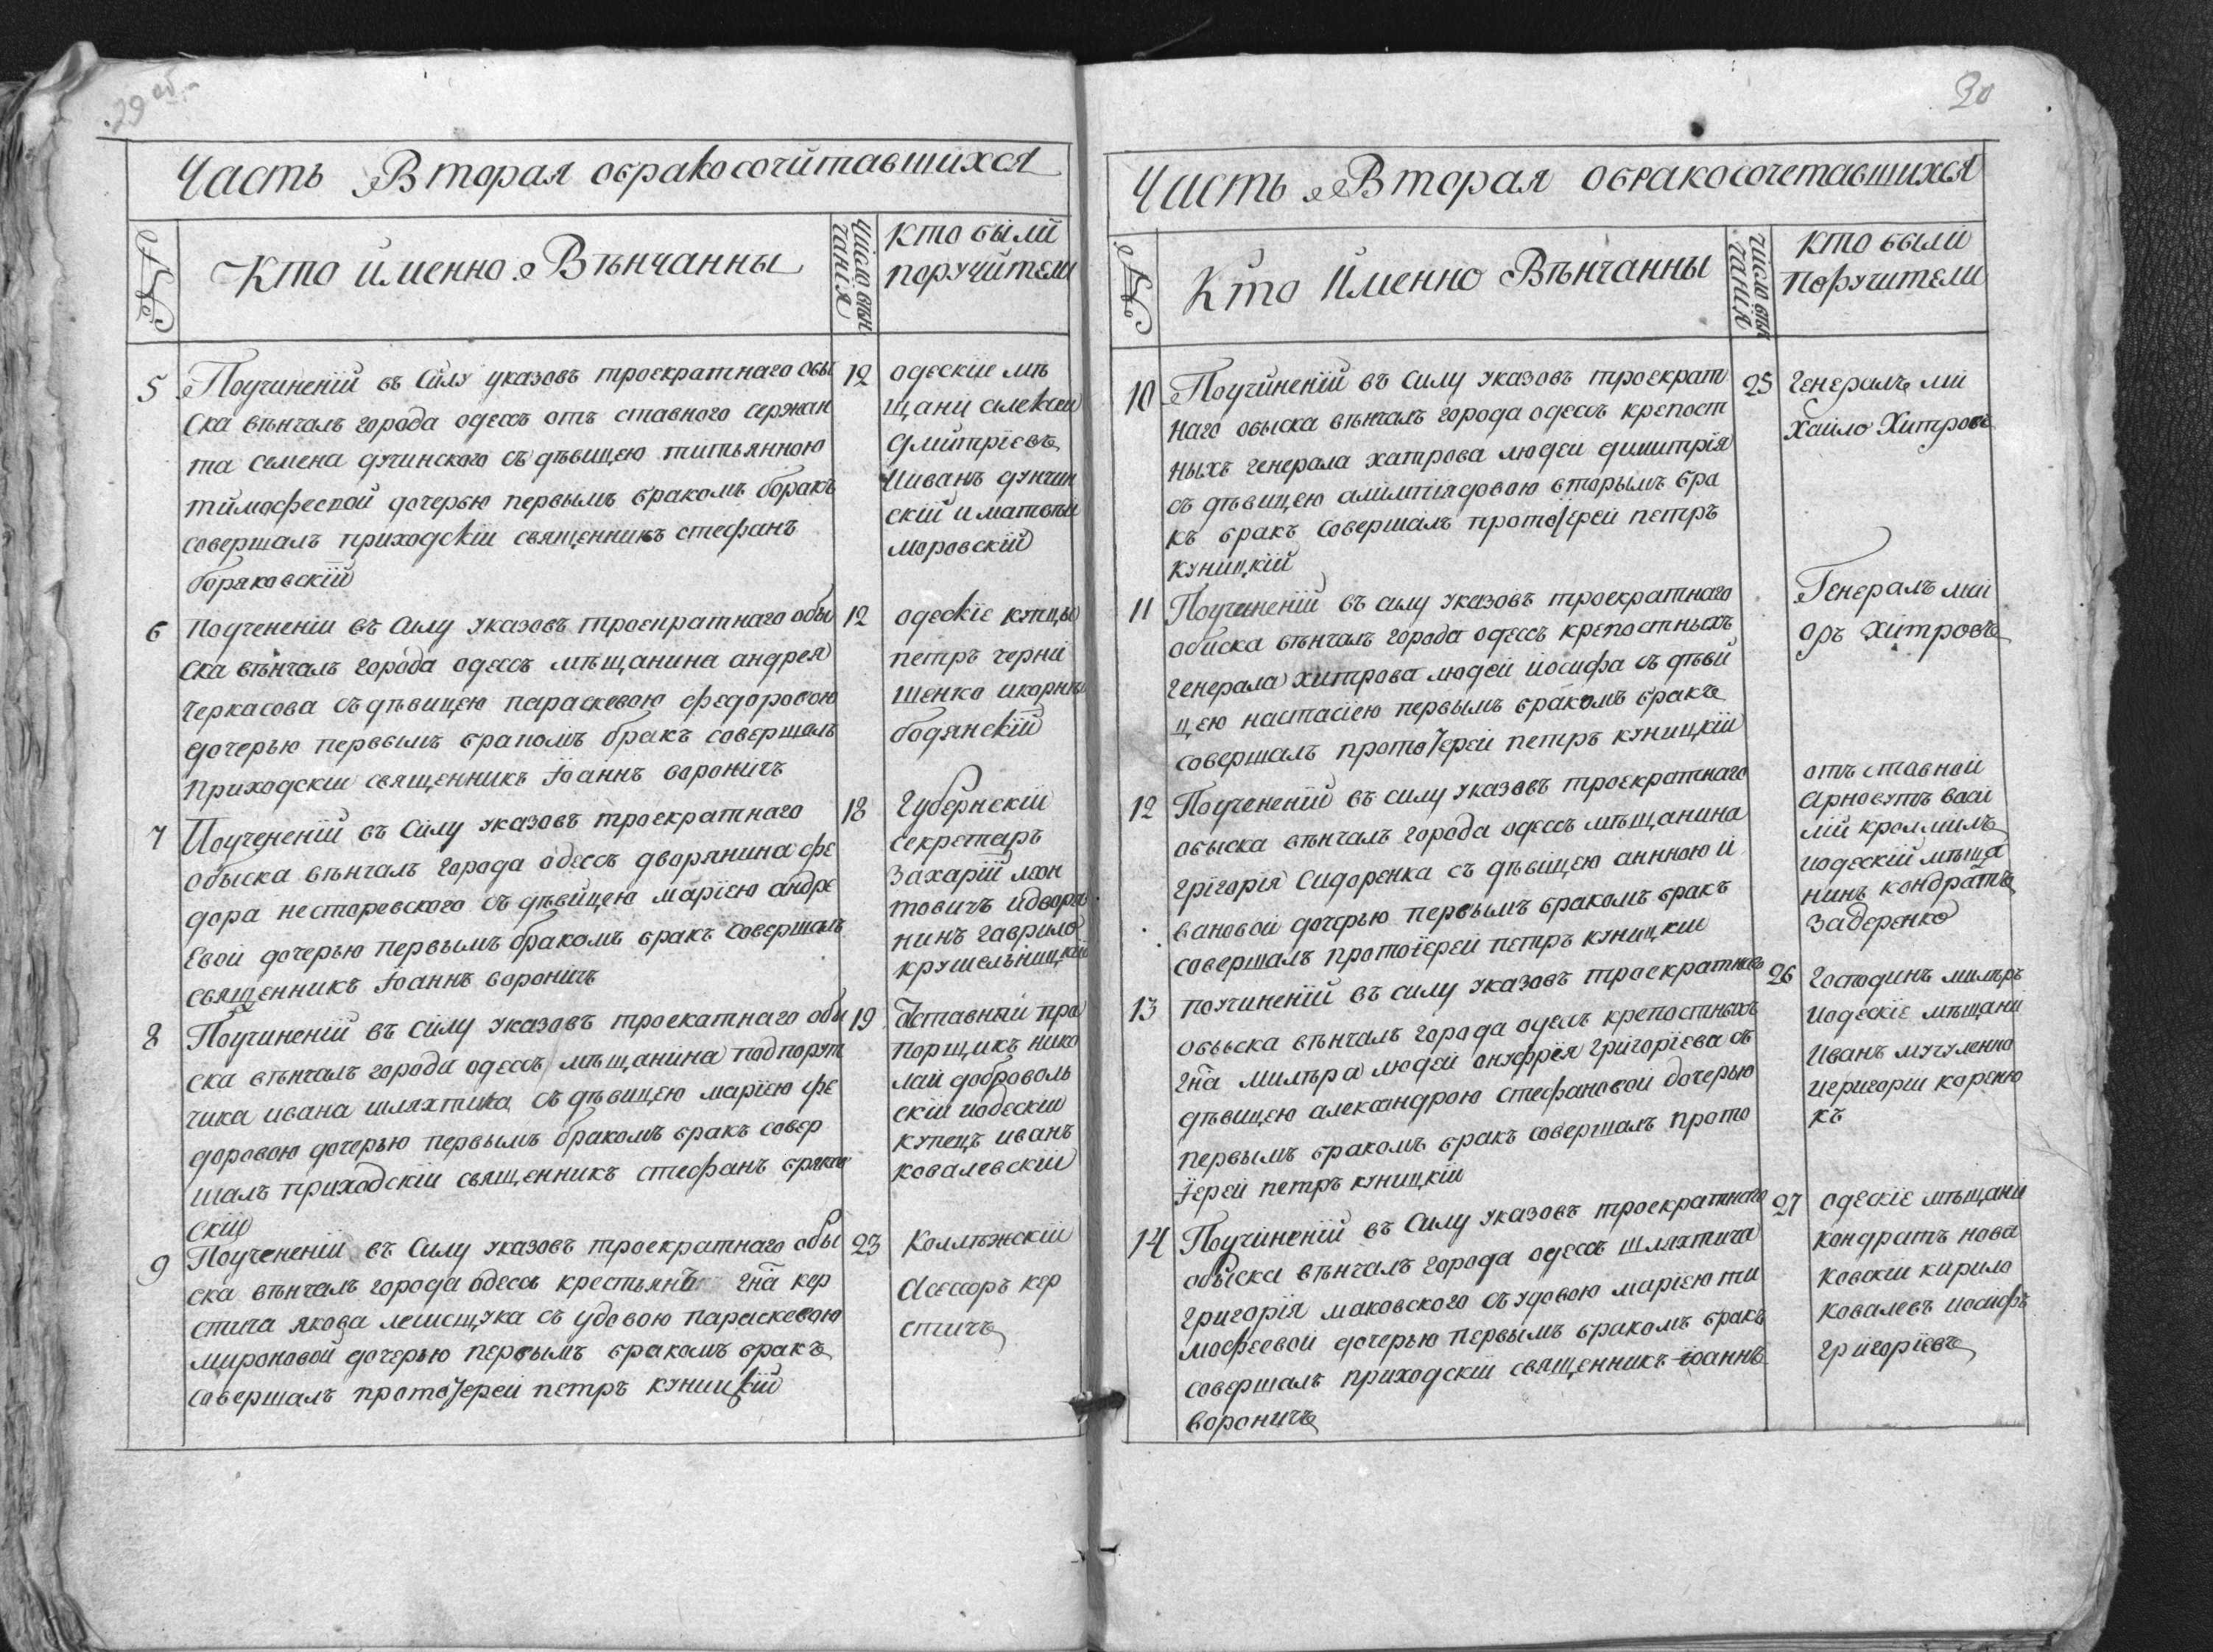 29 об.
Часть Вторая обракосочитавшихся
№
Кто именно Вѣнчанны
число вѣн
чанія
кто были
поручители
5
Поучиненіи въ Силу указовъ троекратнаго обы
ска вѣнчалъ города одессъ отъ ставного сержан
та семена дучинского съ дѣвицею титьянною
тимофеевой дочерью первымъ бракомъ боракъ
совершалъ приходскіи священникъ стефанъ
боряковскій
12
одескіе мѣ
щани алексеи
дмитріевъ
Ииванъ дунчин
скій и матвеи
моровскій
6
поученеіи въ силу указовъ троекратнаго обы
ска вѣнчалъ города одессъ мѣщанина андрея
черкасова съ дѣвицею параскевою федоровою
дочерью первымъ бракомъ бракъ совершалъ
приходскіи священникъ Іоаннъ вороничъ
12
одескіе купцы
петръ черни
шенко икорнѣи
бодянскій
7
Поучененіи въ Силу указовъ троекратнаго
обыска вѣнчалъ города одессъ дворянина фе
дора несторевского съ дѣвицею маріею андре
евои дочерью первымъ бракомъ бракъ совершалъ
священникъ Іоаннъ вороничъ
18
Губернскіи
секретаръ
Захарій леон
товичъ идворя
нинъ гаврило
крушельницкіи
8
Поучиненіи въ Силу указовъ троекатнаго обы
ска вѣнчалъ города одессъ мѣщанина подпорут
чика ивана шляхтича съ дѣвицею маріею фе
доровою дочерью первымъ бракомъ бракъ совер
шалъ приходскіи священникъ стефанъ бряков
скіи
19
Аставныи пра
порщикъ нико
лаи доброволь
скіи иодескіи
купецъ иванъ
ковалевскіи
9
Поучененіи въ Силу указовъ троекратнаго обы
ска вѣнчалъ города одессъ крестьянъ гна кер
стича якова лешсщука съ удовою параскевою
мироновой дочерью первымъ бракомъ бракъ
совершалъ протоіереи петръ куницкій
23
Коллѣжскіи
Асессоръ кер
стичъ
30
Часть Вторая обракосочетавшихся
№
Кто Именно Вѣнчанны
число вѣн
чанія
кто были
поручители
10
Поучиненіи въ силу указовъ троекрат
наго обыска вѣнчалъ города одессъ крепост
ныхъ генерала хатрова людеи димитрія
съ дѣвицею алімпіядовою вторымъ бра
къ бракъ совершалъ протоіереи петръ
куницкіи
25
генералъ ми
хаило Хитровъ
11
Поучененіи въ силу указовъ троекратнаго
обиска вѣнчалъ города одессъ крепостныхъ
генерала хитрова людеи иосифа съ дѣви
цею настасіею первымъ бракомъ бракъ
совершалъ протоіереи петръ куницкіи
Генералъ маи
оръ Хитровъ
12
Поучененіи въ силу указовъ троекратнаго
обыска вѣнчалъ города одессъ мѣщанина
Грігорія Сидоренка съ дѣвіцею аннною и
вановои дочерью первымъ бракомъ бракъ
совершалъ протоіереи петръ куницкіи
отъ ставной
Арноутъ васи
ліи кроллимъ
иодескіи мѣща
нинъ кондратъ
Задеренко
13
поучиненіи въ силу указовъ троекратнаго
обыьска вѣнчалъ города одессъ крепостныхъ
гна милѣра людеи онуфрія григоріева съ
дѣвицею александрою Стефановои дочерью
первымъ бракомъ бракъ совершалъ прото
іереи петръ куницкіи
26
Господинъ милѣръ
иодескіе мѣщани
иванъ мучуленко
иеригории кореню
къ
14
Поучиненіи въ Силу указовъ троекратнаго
обыска вѣнчалъ города одессъ шляхтича
григорія маковского съ удовою маріею ти
мофеевой дочерью первымъ бракомъ бракъ
совершалъ приходскіи священникъ іоаннъ
вороничъ
27
одескіе мѣщани
кондратъ нова
ковскіи кирило
ковалевъ иосифъ
григоріевъ